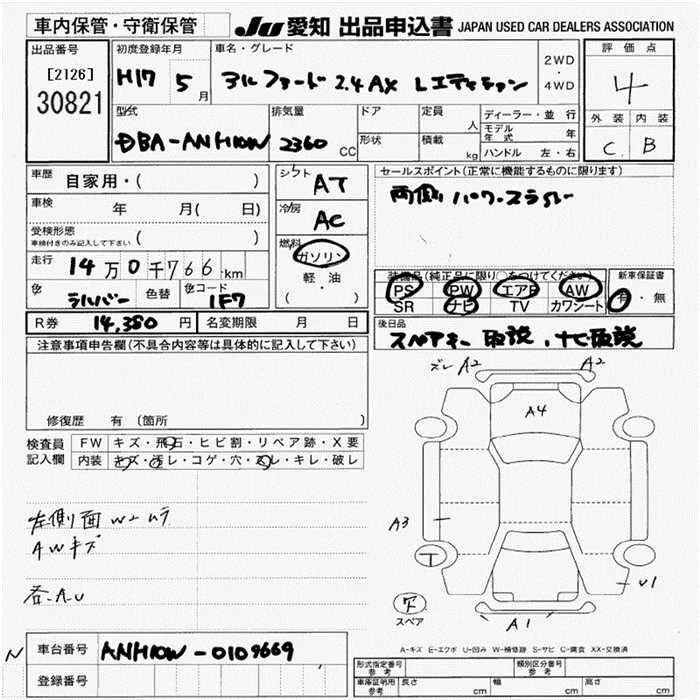 車内保管・守衛保管
JU 愛知 出品申込書 JAPAN USED CAR DEALERS ASSOCIATION
出品番号
[2126]
30821
初度登録年月
H17 5月
車名・グレード
アルファード 2.4 AX Lエディション
2WD
・
4WD
評価点
4
外装 内装
C B
型式
DBA-ANH10W
排気量
2360 CC
ドア
形状
定員 人
積載 kg
ディーラー・並行
モデル年式 年
ハンドル 左・右
車歴 自家用・( )
車検 年 月( 日)
受検形態
車検付きのみ記入して下さい ( )
走行 14万0千766km
色 シルバー 色替 色コード 1F7
シフト AT
冷房 AC
燃料 ガソリン
軽・油
( )
セールスポイント(正常に機能するものに限ります)
両側パワースラー
装備品(純正品に限り○をつけてください)
PS PW エアB AW
SR ナビ TV カワシート
新車保証書
有・無
R券 14,380円 名変期限 月 日
後日品
スペアキー 取説、ナビ取説
注意事項申告欄(不具合内容等は具体的に記入して下さい)
修復歴 有 (箇所 )
検査員記入欄
FW キズ・飛石・ヒビ割・リペア跡・X要
内装 キズ・汚レ・コゲ・穴・スレ・キレ・破レ
左側面 W2ムラ
AWキズ
各A.U
ズレ A2 A2
A4
A3
U1
A1
スペア
A-キズ E-エクボ U-凹み W-補修跡 S-サビ C-腐食 XX-交換済
N 車台番号 ANH10W-0109669
登録番号
形式指定番号 参考 類別区分番号 参考
車庫証明用 参考 長さ cm 幅 cm 高さ cm